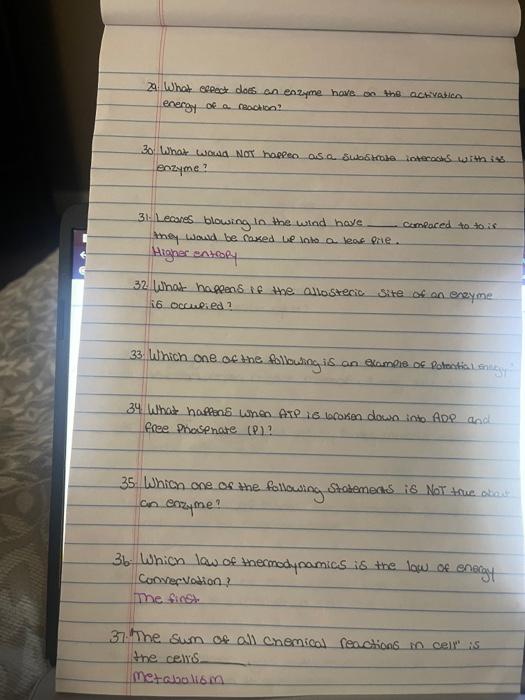 29. What effect does an enzyme have on the activation
energy of a reaction?
30. What would NOT happen as a substrate interacts with its
enzyme?
31. Leaves blowing in the wind have ____ compared to to if
they would be raked up into a leaf pile.
Higher entropy
32. What happens if the allosteric site of an enzyme
is occupied?
33. Which one of the following is an example of Potential energy?
34. What happens when ATP is broken down into ADP and
free Phosphate (P)?
35. Which one of the following statements is NOT true about
an enzyme?
36. Which law of thermodynamics is the law of energy
convervation?
The first
37. "The sum of all chemical reactions in cell" is
the cell's ____
metabolism